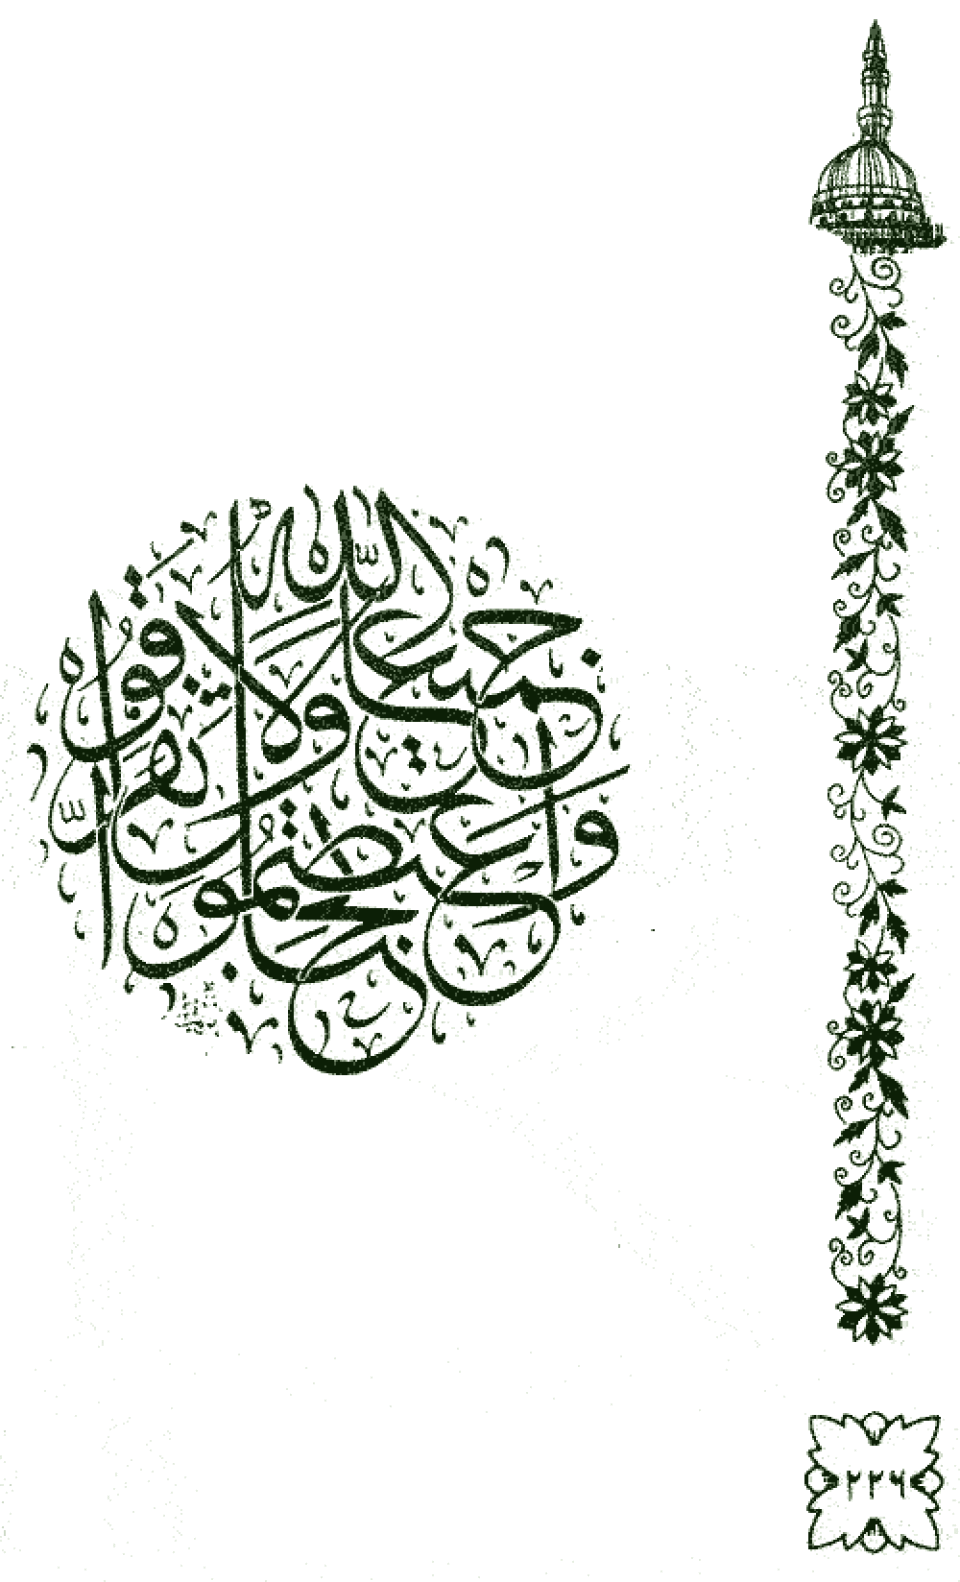 واعتصموا بحبل الله جميعا ولا تفرقوا
٢٢٦